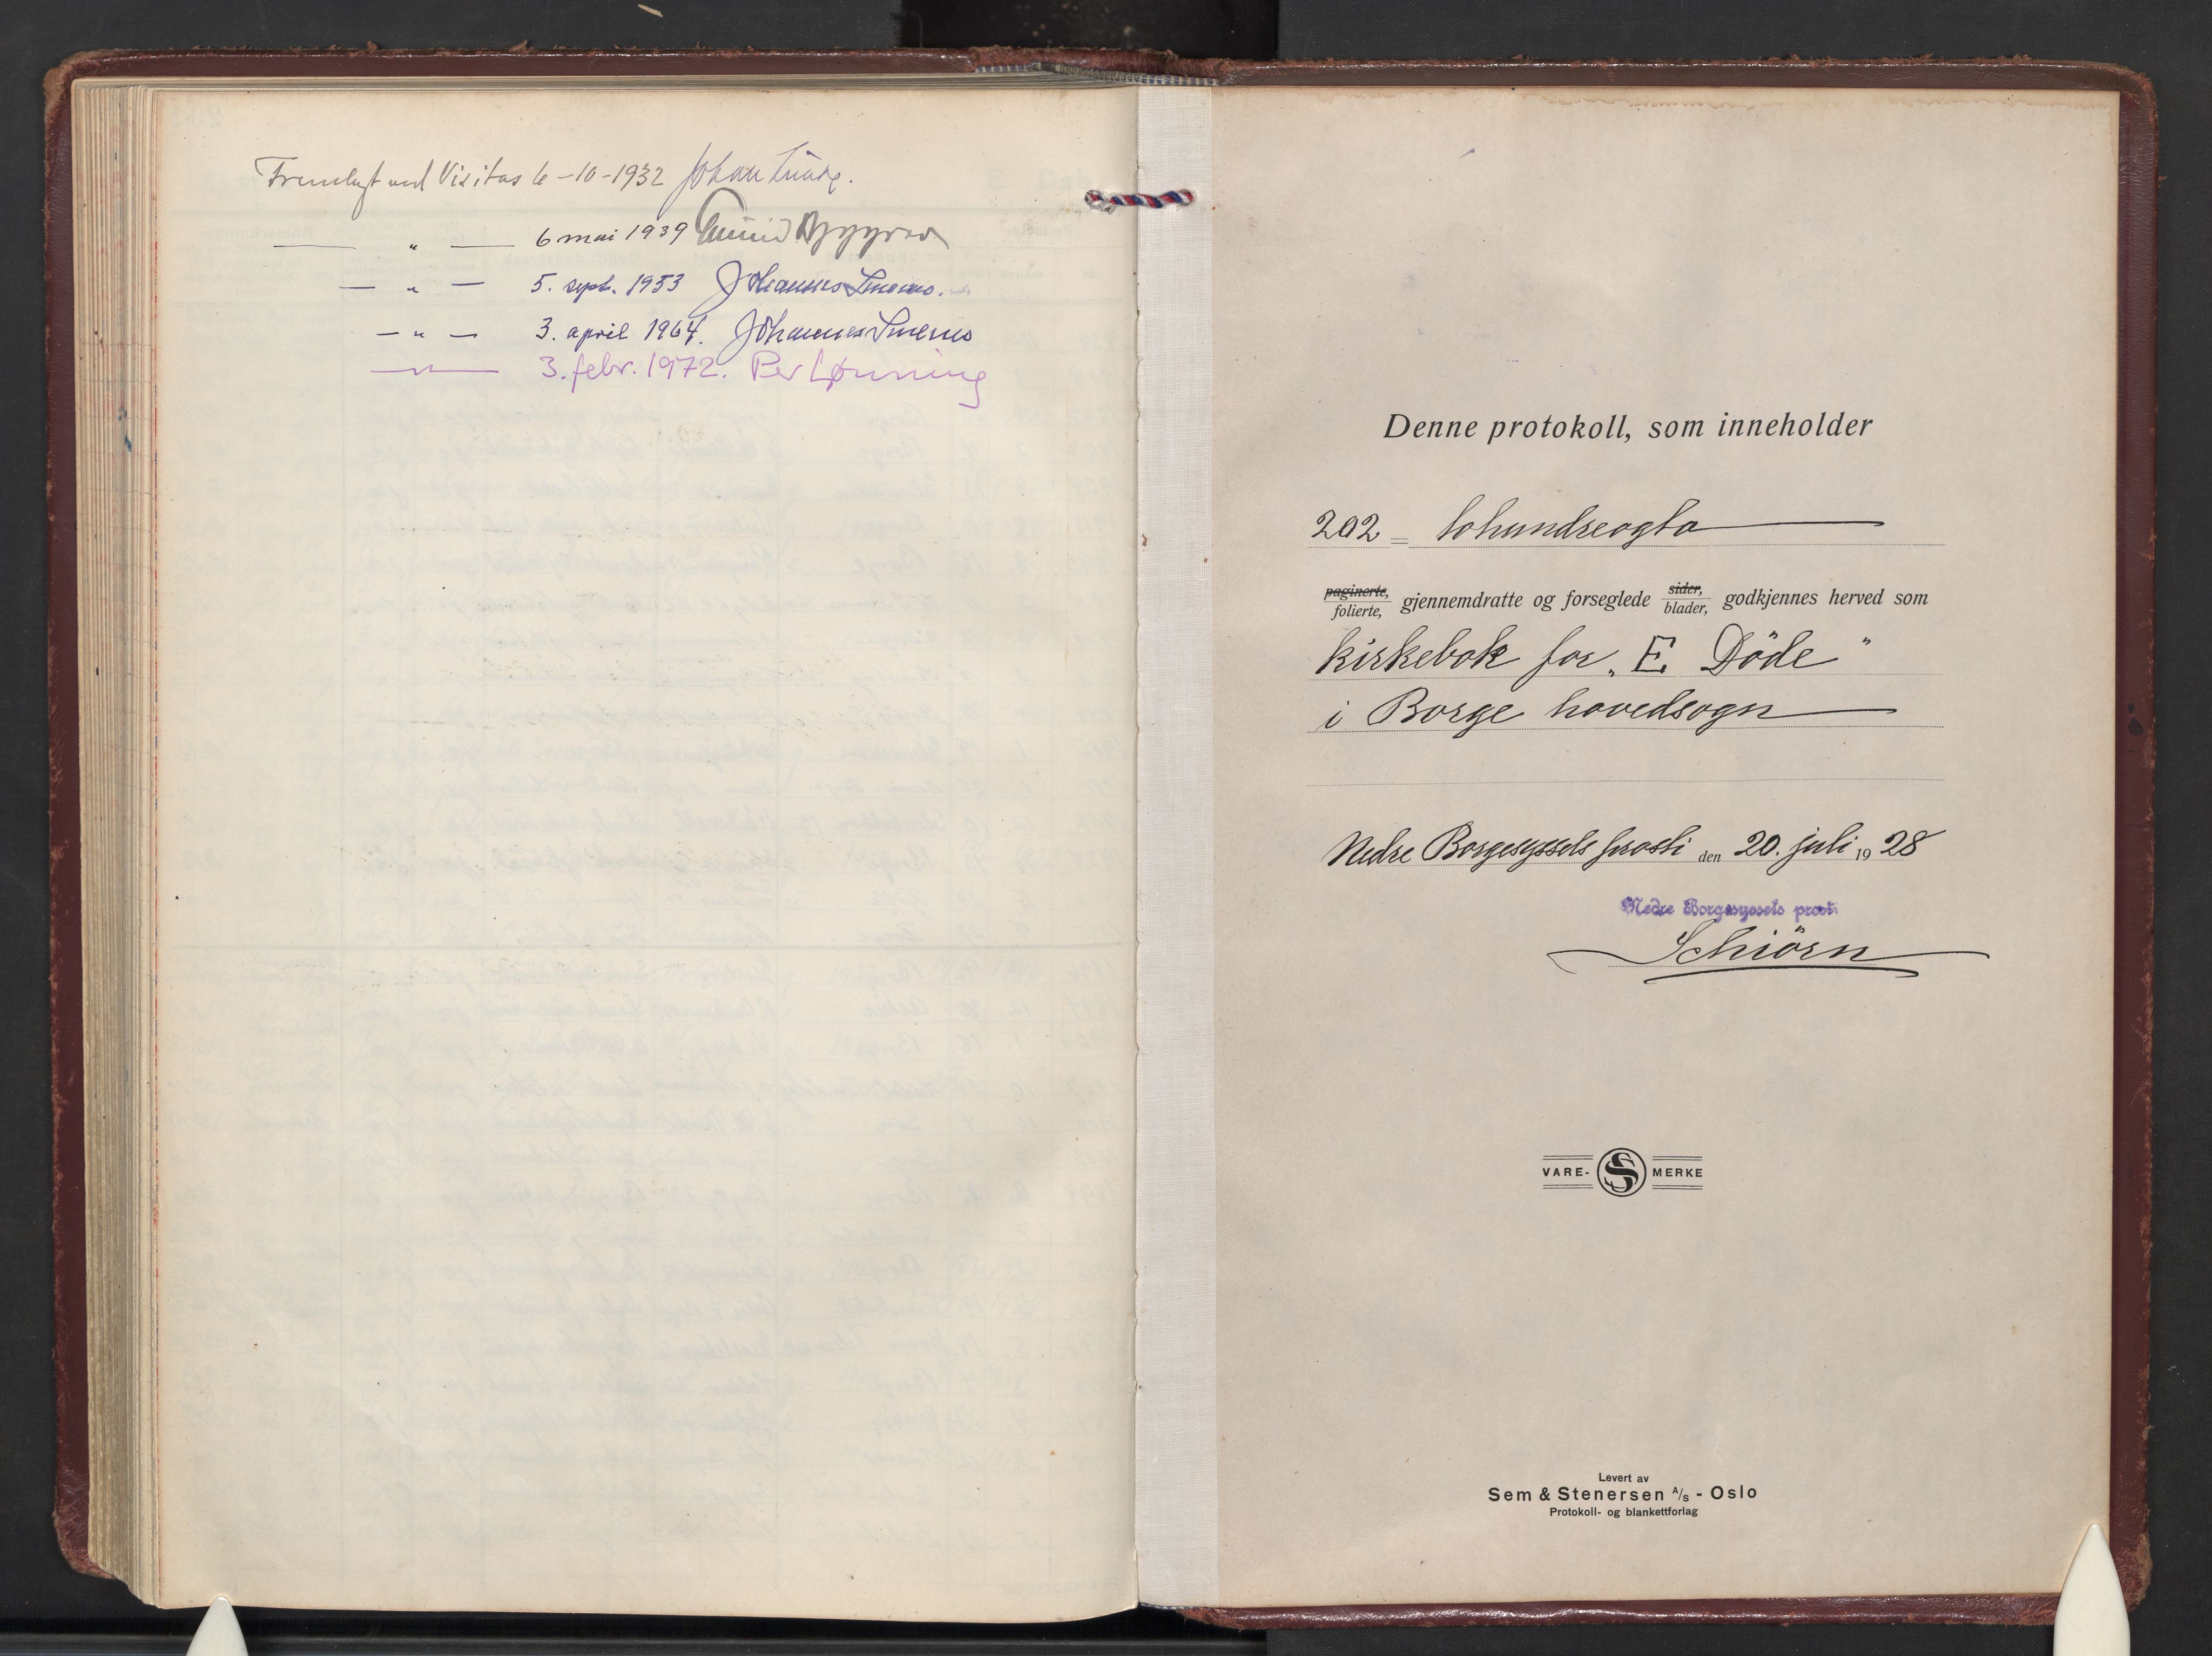 Fremlagt ved Visitas 6-10-1932 Johan Lunde.
— „ — 6 mai 1939
— „ — 5. sept. 1953 Johannes Smemo.
— „ — 3. april 1964. Johannes Smemo
— „ — 3. febr. 1972. Per Lønning
Denne protokoll, som inneholder
202 = tohundreogto
paginerte, folierte, gjennemdratte og forseglede sider, blader, godkjennes herved som
kirkebok for „E Döde"
i Borge hovedsogn
Nedre Borgesyssels prosti den 20. juli 1928
Nedre Borgesyssels prosti
Schiörn
VARE- S MERKE
Levert av
Sem & Stenersen A/S - Oslo
Protokoll- og blankettforlag